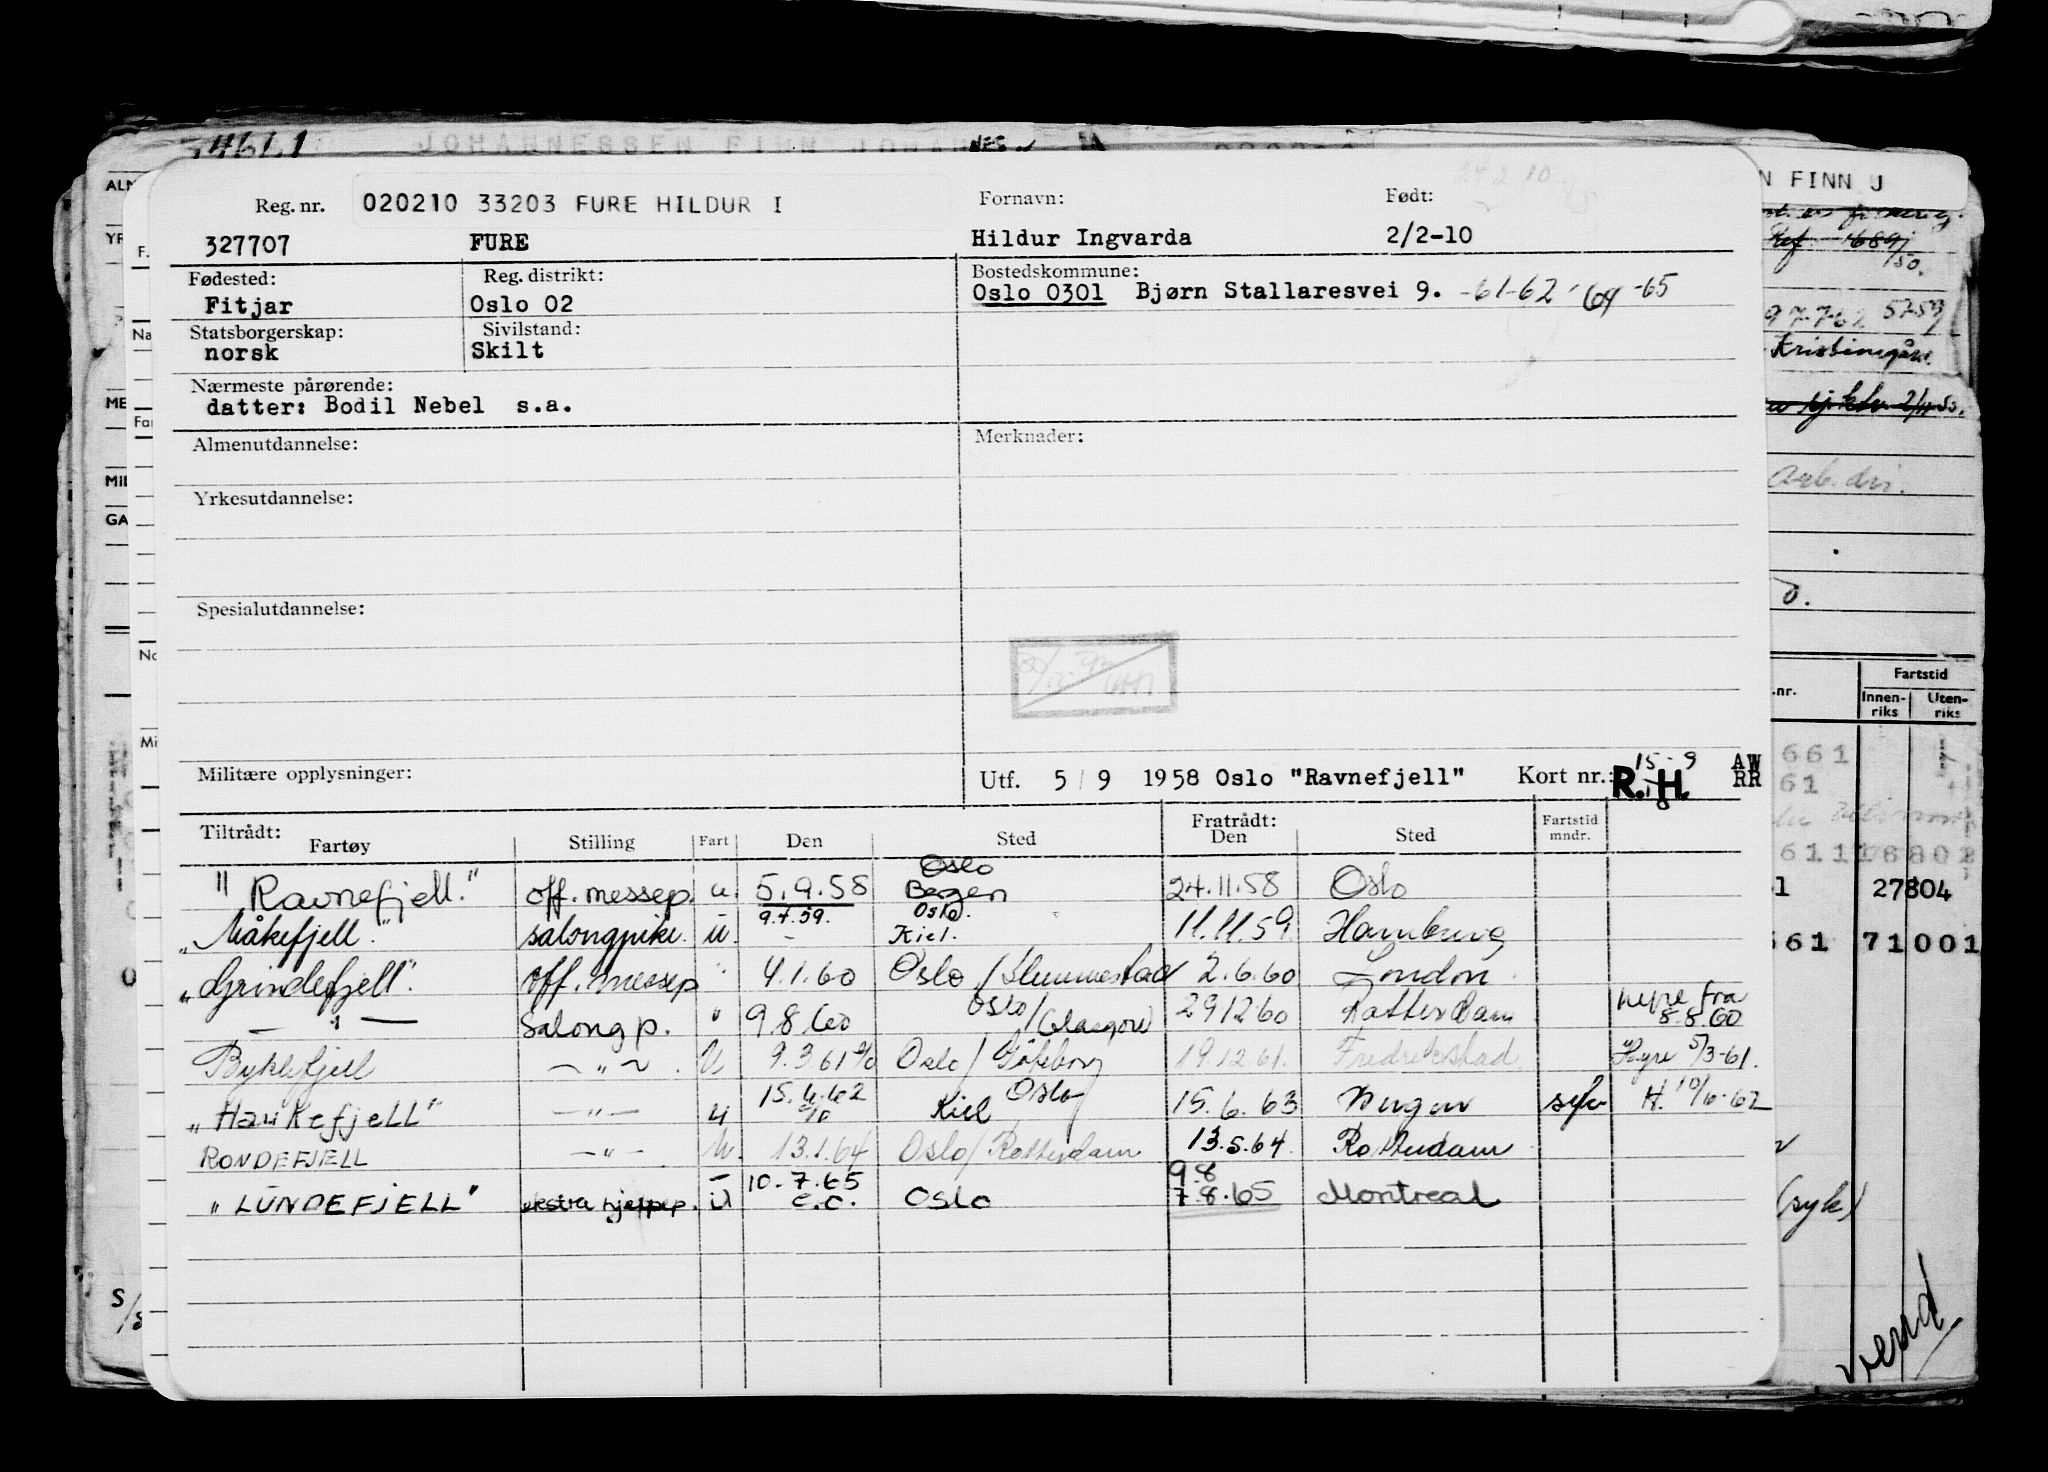 4661 JOHANNESSEN FINN JOHANNES
N FINN J
Reg. nr. 020210 33203 FURE HILDUR I Fornavn: Født:
327707 FURE Hildur Ingvarda 2/2-10
Fødested: Reg. distrikt: Bostedskommune:
Fitjar Oslo 02 Oslo 0301 Bjørn Stallaresvei 9. -61-62-64-65
Statsborgerskap: Sivilstand:
norsk Skilt
Nærmeste pårørende:
datter: Bodil Nebel s.a.
Almenutdannelse: Merknader:
Yrkesutdannelse:
Spesialutdannelse:
Militære opplysninger: Utf. 5/9 1958 Oslo "Ravnefjell" Kort nr.: R.H. 15-9 AW RR
Tiltrådt: Fratrådt:
Fartøy Stilling Fart Den Sted Den Sted Fartstid mndr.
"Ravnefjell." off. messep. u. 5.9.58 Oslo Bergen 24.11.58 Oslo
"Måkefjell." salongpike. u. 9.7.59. Oslo. Kiel. 11.11.59. Hamburg
"Grindefjell". off. messep " 4.1.60 Oslo/Slemmestad 2.6.60 London
— " — Salong p. " 9.8.60 Oslo/Glasgow 29.12.60 Rotterdam hyre fra 8.8.60
Byklefjell — " — U 9.3.61 Oslo/Göteborg 19.12.61. Fredrikstad Hyre 5/3-61.
"Haukefjell" — " — u 15.6.62 Oslo Kiel 15.6.63 Bergen syk H. 10/6-62
RONDEFJELL — " — U. 13.1.64 Oslo/Rotterdam 13.5.64 Rotterdam
"LUNDEFJELL" ekstra hjelpep. U 10.7.65 e.o. Oslo 9.8 7.8.65 Montreal
Arb. dri.
.nr. Fartstid
Innen-riks Uten-riks
661
61
27804
661 71001
(syk)
vend